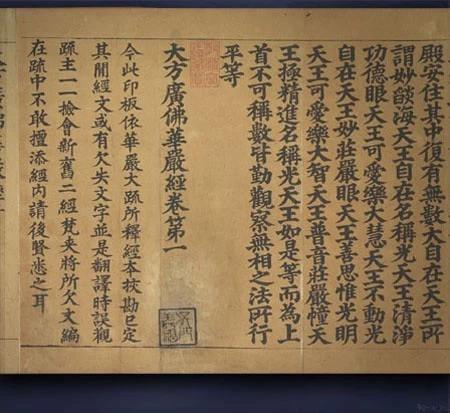 殿安住其中復有無數大自在天王所
謂妙燄海天王自在名稱光天王清淨
功德眼天王可愛樂大慧天王不動光
自在天王妙莊嚴眼天王善思惟光明
天王可愛樂大智天王普音莊嚴幢天
王極精進名稱光天王如是等而為上
首不可稱數皆勤觀察無相之法所行
平等
大方廣佛華嚴經卷第一
今此印板依華嚴大疏所釋經本挍勘已定
其閒經文或有欠失文字並是翻譯時誤觀
疏主一一檢會新舊二經梵夾將所欠文編
在疏中不敢擅添經內請後賢悉之耳